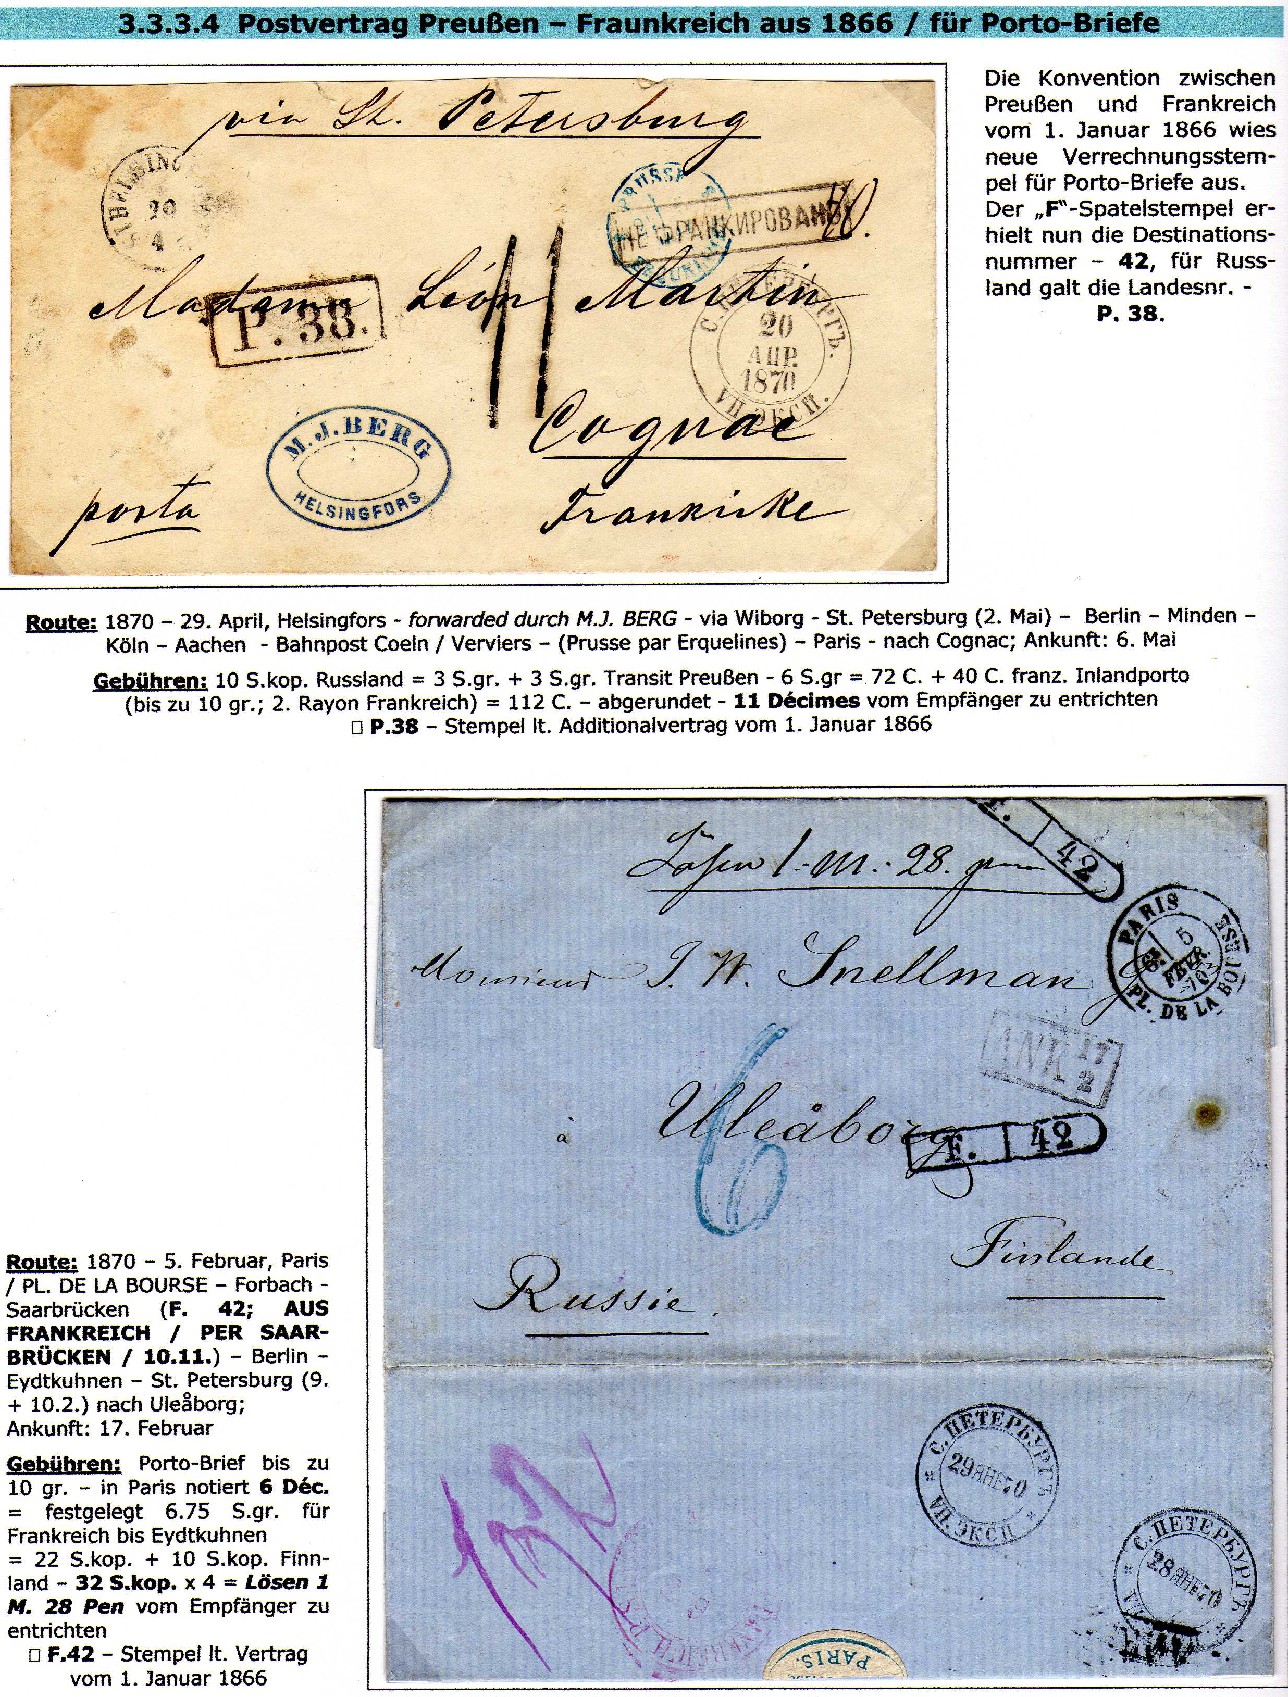 3.3.3.4 Postvertrag Preußen – Fraunkreich aus 1866 / für Porto-Briefe
Die Konvention zwischen
Preußen und Frankreich
vom 1. Januar 1866 wies
neue Verrechnungsstem-
pel für Porto-Briefe aus.
Der „F“-Spatelstempel er-
hielt nun die Destinations-
nummer – 42, für Russ-
land galt die Landesnr. -
P. 38.
via St. Petersburg
20
4
PRUSSE
НЕФРАНКИРОВАНО
40.
Madame Léon Martin
P. 38.
11
С. ПЕТЕРБУРГЪ.
20
АПР.
1870
VII. ЭКСП.
Cognac
M. J. BERG
HELSINGFORS
porto
Frankrike
Route: 1870 – 29. April, Helsingfors - forwarded durch M.J. BERG - via Wiborg - St. Petersburg (2. Mai) – Berlin – Minden –
Köln – Aachen - Bahnpost Coeln / Verviers – (Prusse par Erquelines) – Paris - nach Cognac; Ankunft: 6. Mai
Gebühren: 10 S.kop. Russland = 3 S.gr. + 3 S.gr. Transit Preußen - 6 S.gr = 72 C. + 40 C. franz. Inlandporto
(bis zu 10 gr.; 2. Rayon Frankreich) = 112 C. – abgerundet - 11 Décimes vom Empfänger zu entrichten
□ P.38 – Stempel lt. Additionalvertrag vom 1. Januar 1866
F. 42
Lösen 1. M. 28. pen
PARIS
5
FEVR.
70
PL. DE LA BOURSE
Monsieur J. W. Snellman
ANK 17
2
6
à Uleåborg
F. 42
Finlande
Russie.
С. ПЕТЕРБУРГЪ
29 ЯНВ. 70
VII. ЭКСП
С. ПЕТЕРБУРГЪ
28 ЯНВ. 70
32
PARIS.
Route: 1870 – 5. Februar, Paris
/ PL. DE LA BOURSE – Forbach -
Saarbrücken (F. 42; AUS
FRANKREICH / PER SAAR-
BRÜCKEN / 10.11.) – Berlin –
Eydtkuhnen – St. Petersburg (9.
+ 10.2.) nach Uleåborg;
Ankunft: 17. Februar
Gebühren: Porto-Brief bis zu
10 gr. – in Paris notiert 6 Déc.
= festgelegt 6.75 S.gr. für
Frankreich bis Eydtkuhnen
= 22 S.kop. + 10 S.kop. Finn-
land – 32 S.kop. x 4 = Lösen 1
M. 28 Pen vom Empfänger zu
entrichten
□ F.42 – Stempel lt. Vertrag
vom 1. Januar 1866